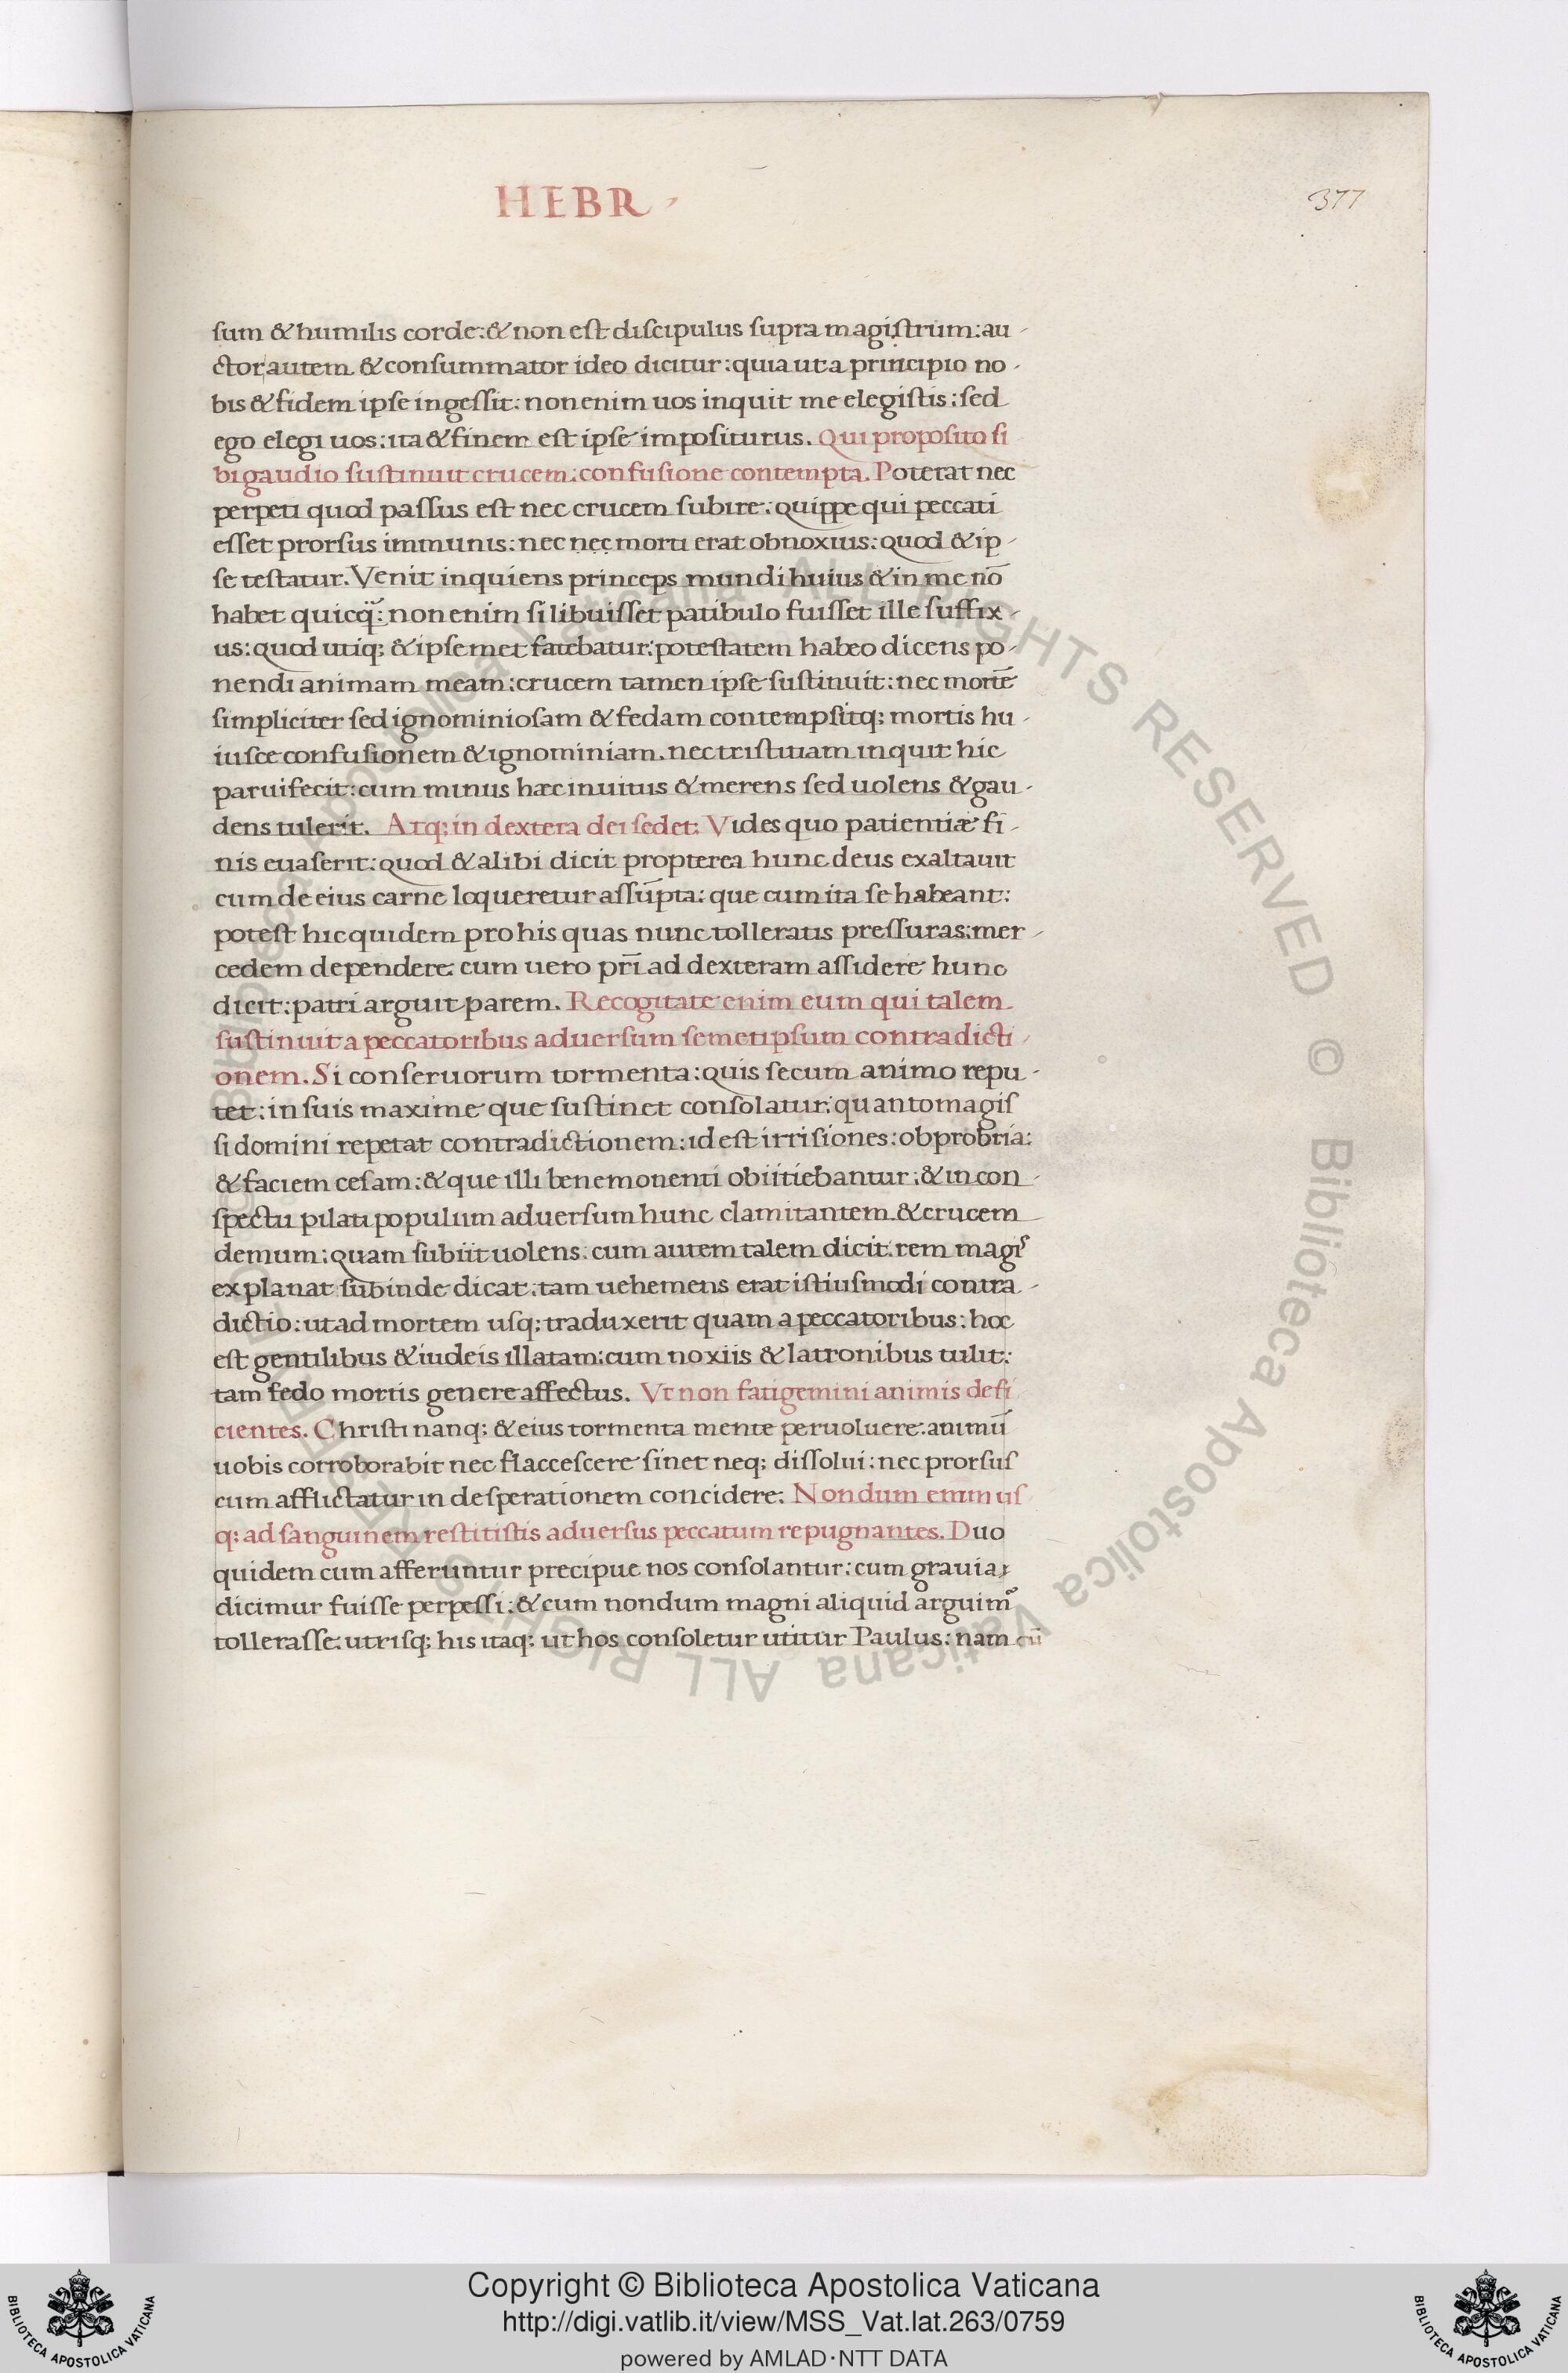 HEBR
377
sum & humilis corde: & non est discipulus supra magistrum: au-
ctor autem & consummator ideo dicitur: quia ut a principio no-
bis & fidem ipse ingessit: non enim uos inquit me elegistis: sed
ego elegi uos: ita & finem est ipse impositurus. Qui proposito si
bi gaudio sustinuit crucem: confusione contempta. Poterat nec
perpeti quod passus est nec crucem subire: quippe qui peccati
esset prorsus immunis: nec nec morti erat obnoxius: quod & ip-
se testatur. Venit inquiens princeps mundi huius & in me nō
habet quicq̃: non enim si libuisset patibulo fuisset ille suffix-
us: quod utiq; & ipsemet fatebatur: potestatem habeo dicens po-
nendi animam meam: crucem tamen ipse sustinuit: nec mortē
simpliciter sed ignominiosam & fedam contempsitq; mortis hu-
iusce confusionem & ignominiam. nec tristitiam inquit hic
paruifecit: cum minus hæc inuitus & merens sed uolens & gau-
dens tulerit. Atq; in dextera dei sedet: Vides quo patientiæ fi-
nis euaserit: quod & alibi dicit propterea hunc deus exaltauit
cum de eius carne loqueretur assūpta: que cum ita se habeant:
potest hic quidem pro his quas nunc tolleratis pressuras: mer-
cedem dependere: cum uero prī ad dexteram assidere hunc
dicit: patri arguit parem. Recogitate enim eum qui talem
sustinuit a peccatoribus aduersum semetipsum contradicti-
onem. Si conseruorum tormenta: quis secum animo repu-
tet: in suis maxime que sustinet consolatur: quanto magis
si domini repetat contradictionem: id est irrisiones: obprobria:
& faciem cesam: & que illi bene monenti obiitiebantur: & in con-
spectu pilati populum aduersum hunc clamitantem & crucem
demum: quam subiit uolens: cum autem talem dicit: rem magis
explanat subinde dicat: tam uehemens erat istiusmodi contra-
dictio: ut ad mortem usq; traduxerit quam a peccatoribus: hoc
est gentilibus & iudeis illatam: cum noxiis & latronibus tulit:
tam fedo mortis genere affectus. Vt non fatigemini animis defi
cientes. Christi nanq; & eius tormenta mente peruoluere: animū
uobis corroborabit nec flaccescere sinet neq; dissolui: nec prorsus
cum afflictatur in desperationem concidere: Nondum enim us
q; ad sanguinem restitistis aduersus peccatum repugnantes. Duo
quidem cum afferuntur precipue nos consolantur: cum grauia
dicimur fuisse perpessi: & cum nondum magni aliquid arguimꝰ
tollerasse: utrisq; his itaq; ut hos consoletur utitur Paulus: nam cū
© Biblioteca Apostolica Vaticana ALL RIGHTS RESERVED © Biblioteca Apostolica Vaticana ALL RIGHTS RESERVED
Copyright © Biblioteca Apostolica Vaticana
http://digi.vatlib.it/view/MSS_Vat.lat.263/0759
powered by AMLAD·NTT DATA
BIBLIOTECA APOSTOLICA VATICANA
BIBLIOTECA APOSTOLICA VATICANA